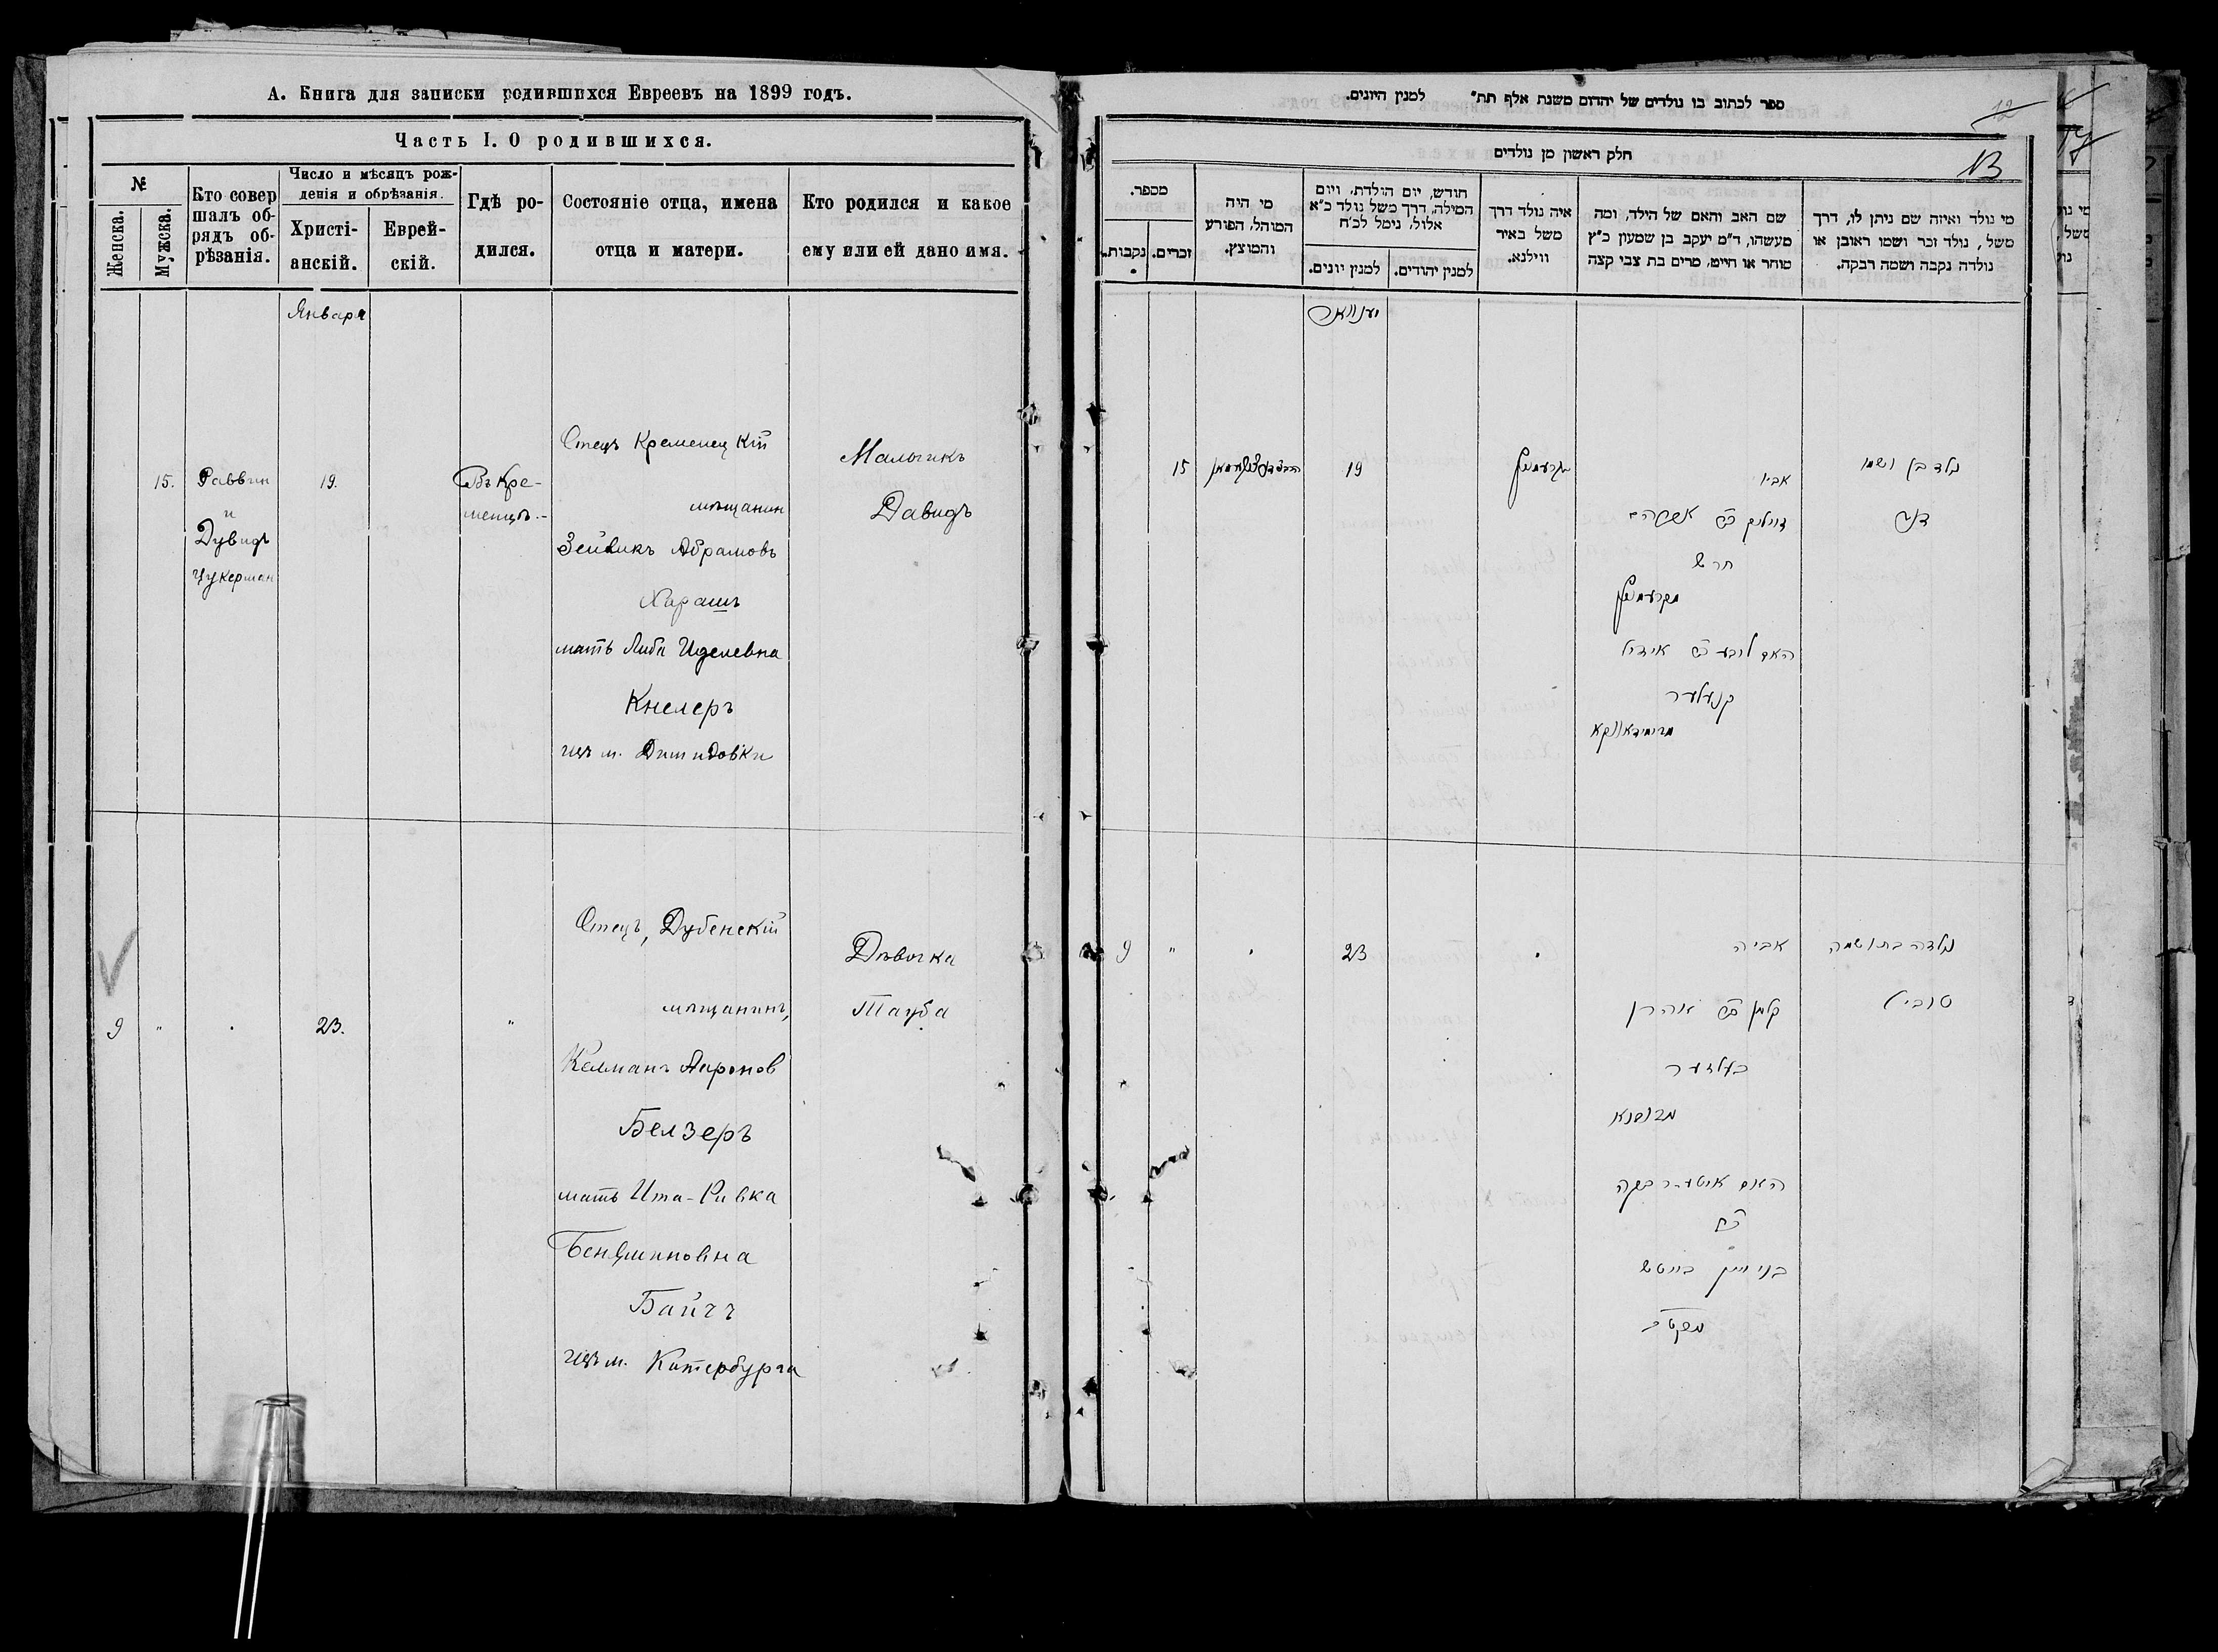 А. Книга для записки родившихся Евреевъ на 1899 годъ.
Часть I. О родившихся.
№
Женска.
Мужска.
Кто совер
шалъ об-
рядъ об-
рѣзанія.
Число и мѣсяцъ рож-
денія и обрѣзанія.
Христі-
анскій.
Еврей-
скій.
Гдѣ ро-
дился.
Состояніе отца, имена
отца и матери.
Кто родился и какое
ему или ей дано имя.
Января
15.
Раввин
и
Дувидъ
Цукерман
19.
Въ Кре-
менцѣ.-
Отецъ Кременецкій
мѣщанин
Зейликъ Абрамовъ
Харашъ
мать Либа Иделевна
Кнелеръ
изъ м. Демидовки
Мальчикъ
Давидъ
9
"
.
23.
"
Отецъ, Дубенскій
мѣщанинъ,
Келманъ Ааронов
Белзеръ
мать Ита-Ривка
Бенеминовна
Байчъ
изъ м. Катербурга
Дѣвочка
Тауба
ספר לכתוב בו נולדים של יהדום משנת אלף תת״ למנין היונים.
12
13
חלק ראשון מן נולדים
מספר.
נקבות.
זכרים.
מי היה
המוהל, הפורע
והמוצץ.
חודש, יום הולדת, ויום
המילה, דרך משל נולד כ״א
אלול, נימל לכ״ח
למנין יונים.
למנין יהודים.
איה נולד דרך
משל באיר
ווילנא.
שם האב והאם של הילד, ומה
מעשהו, ד״מ יעקב בן שמעון כ״ץ
סוחר או חייט, מרים בת צבי קצה
מי נולד ואיזה שם ניתן לו, דרך
משל, נולד זכר ושמו ראובן או
נולדה נקבה ושמה רבקה.
יענוואר
15
19
אביו
נולד בן ושמו
דוד
חרש
מקרעמניץ
האם ליבע בת אידיל
קנעלער
9
"
23
אביה
קלמן בן אהרן
בעלזער
מדובנא
האם איטע רבקה
בת
בנימין בייטש
נולדה בת ושמה
טובי׳